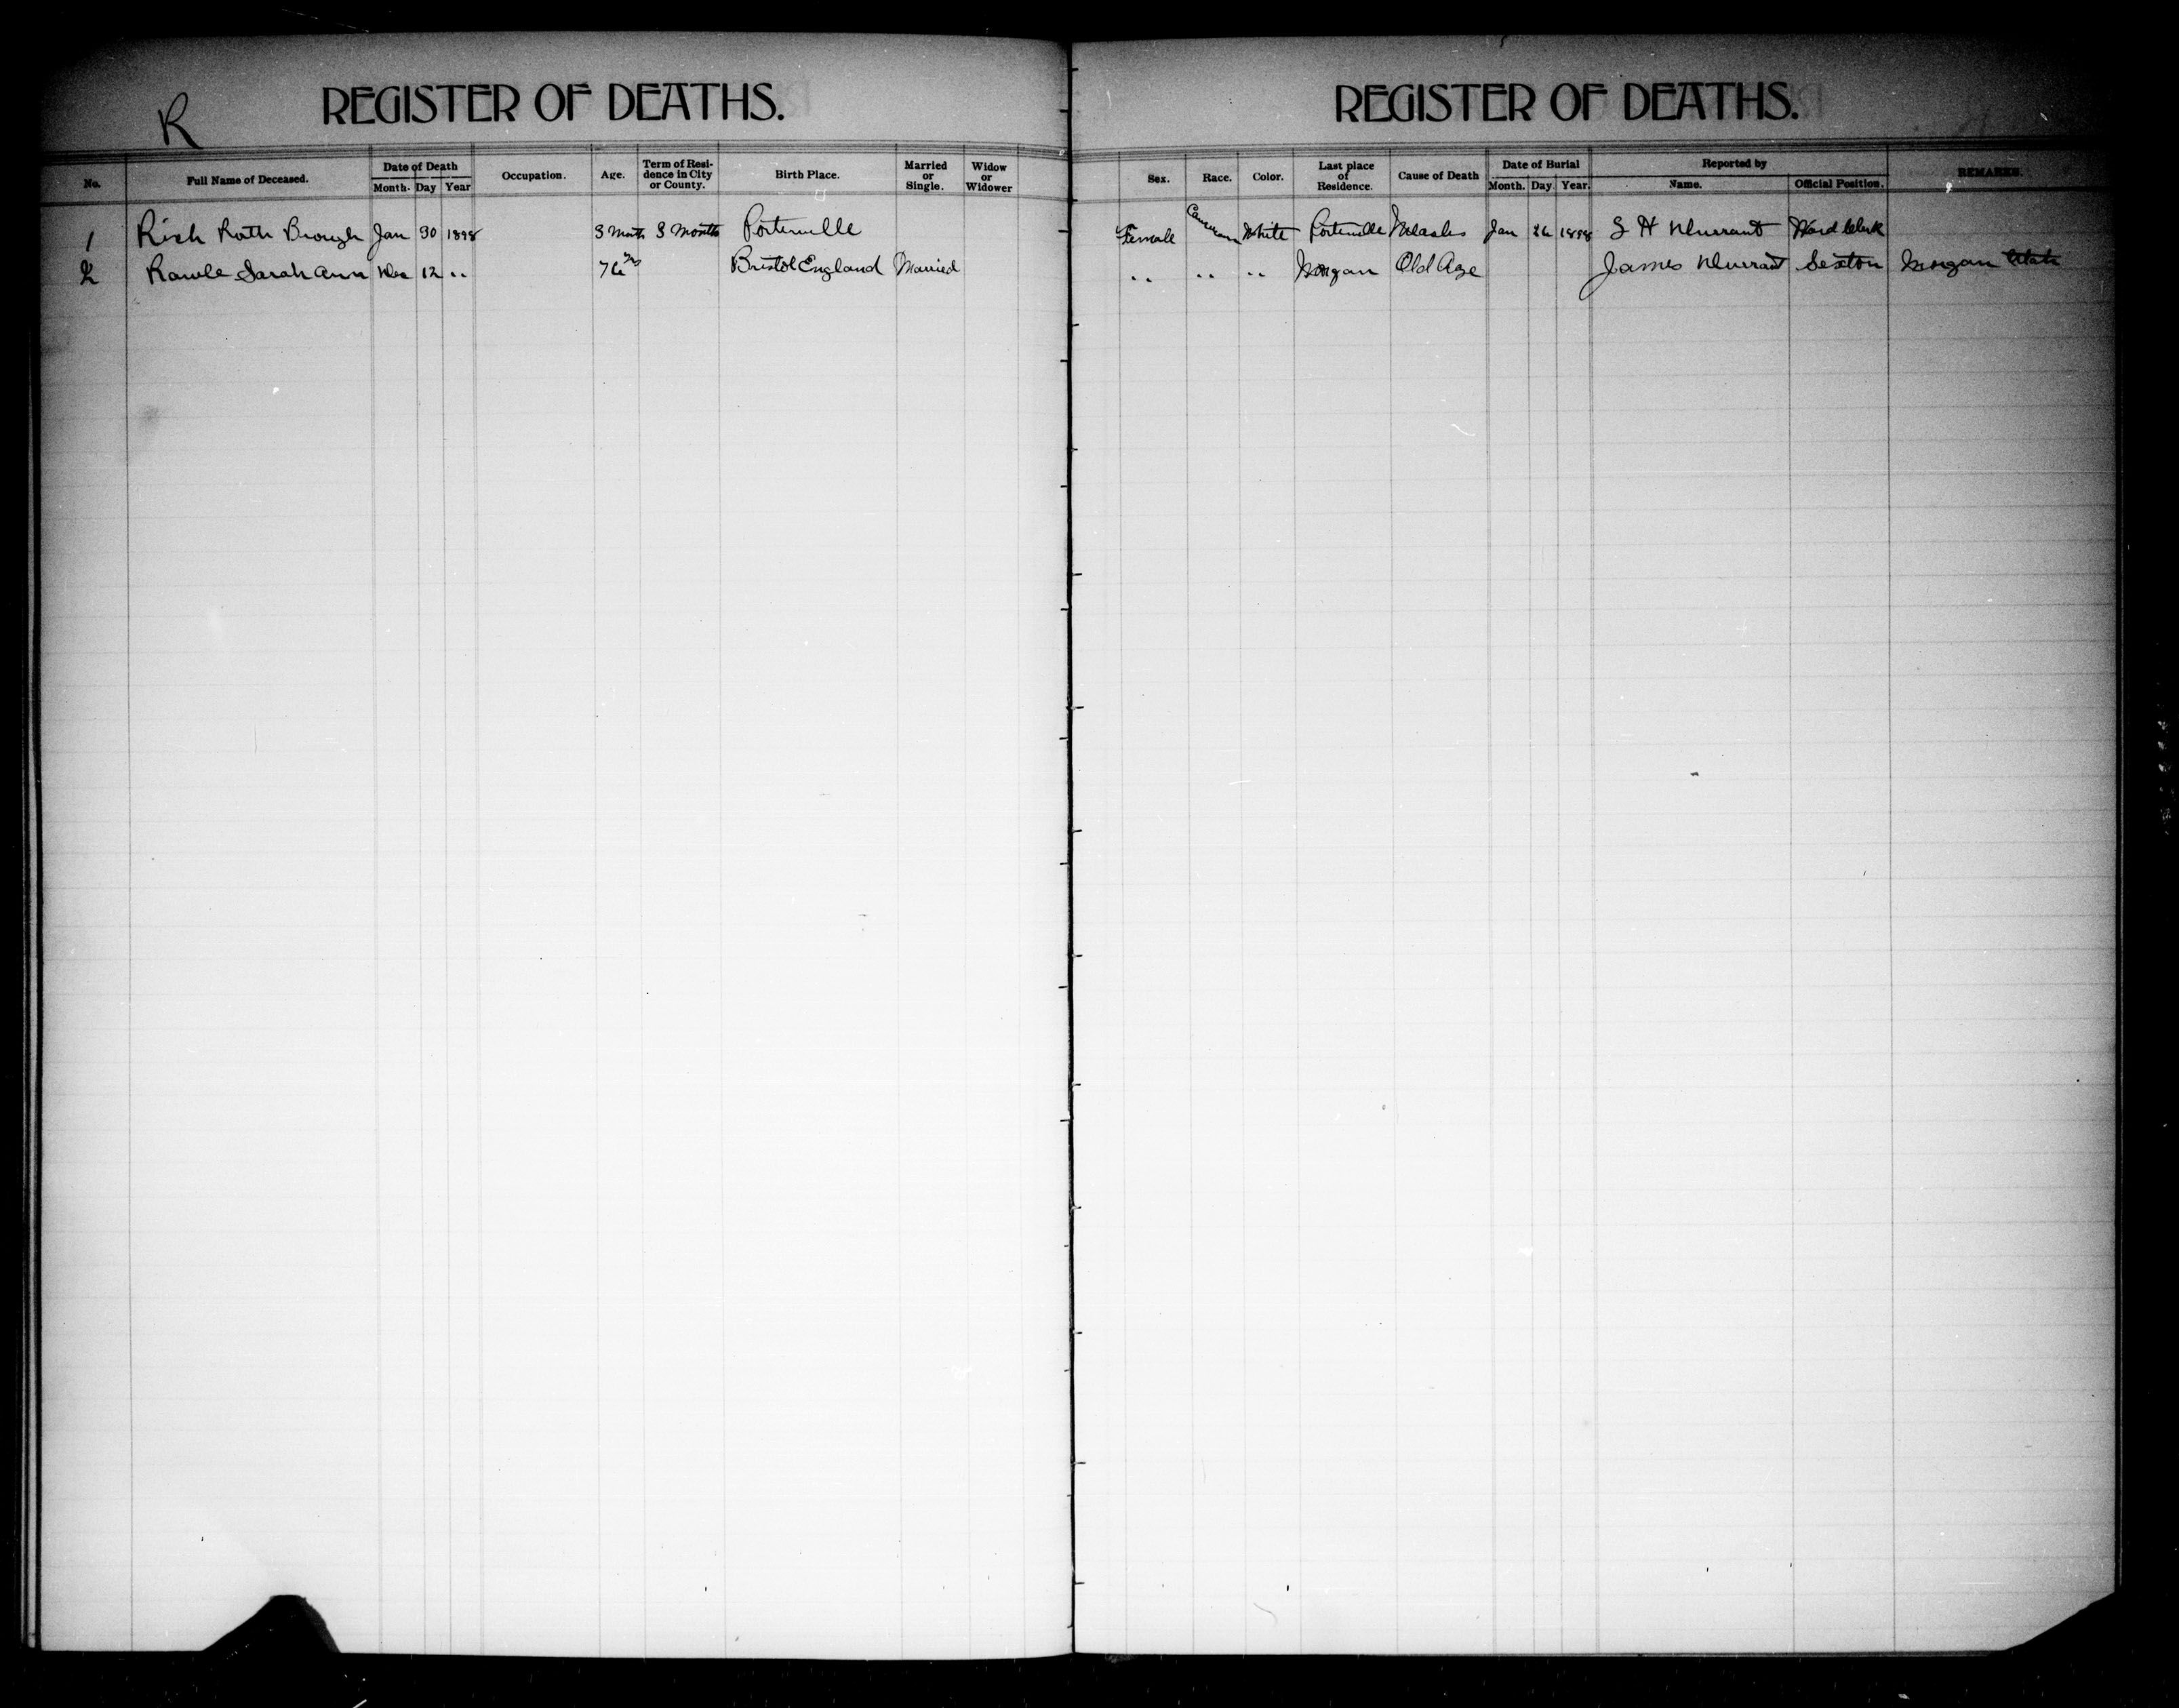 R
REGISTER OF DEATHS.
No. Full Name of Deceased. Date of Death Month. Day Year Occupation. Age. Term of Residence in City or County. Birth Place. Married or Single. Widow or Widower
1 Rich Ruth Brough Jan 30 1898 3 Month 3 Months Porterville
2 Rawle Sarah Ann Dec 12 " 76 yrs Bristol England Married
REGISTER OF DEATHS.
Sex. Race. Color. Last place of Residence. Cause of Death Date of Burial Month. Day. Year. Reported by Name. Official Position. REMARKS.
Female White Porterville Measles Jan 1898 H Durrant Ward Clerk
" " " Morgan Old Age James Durrant Sexton Morgan Utah